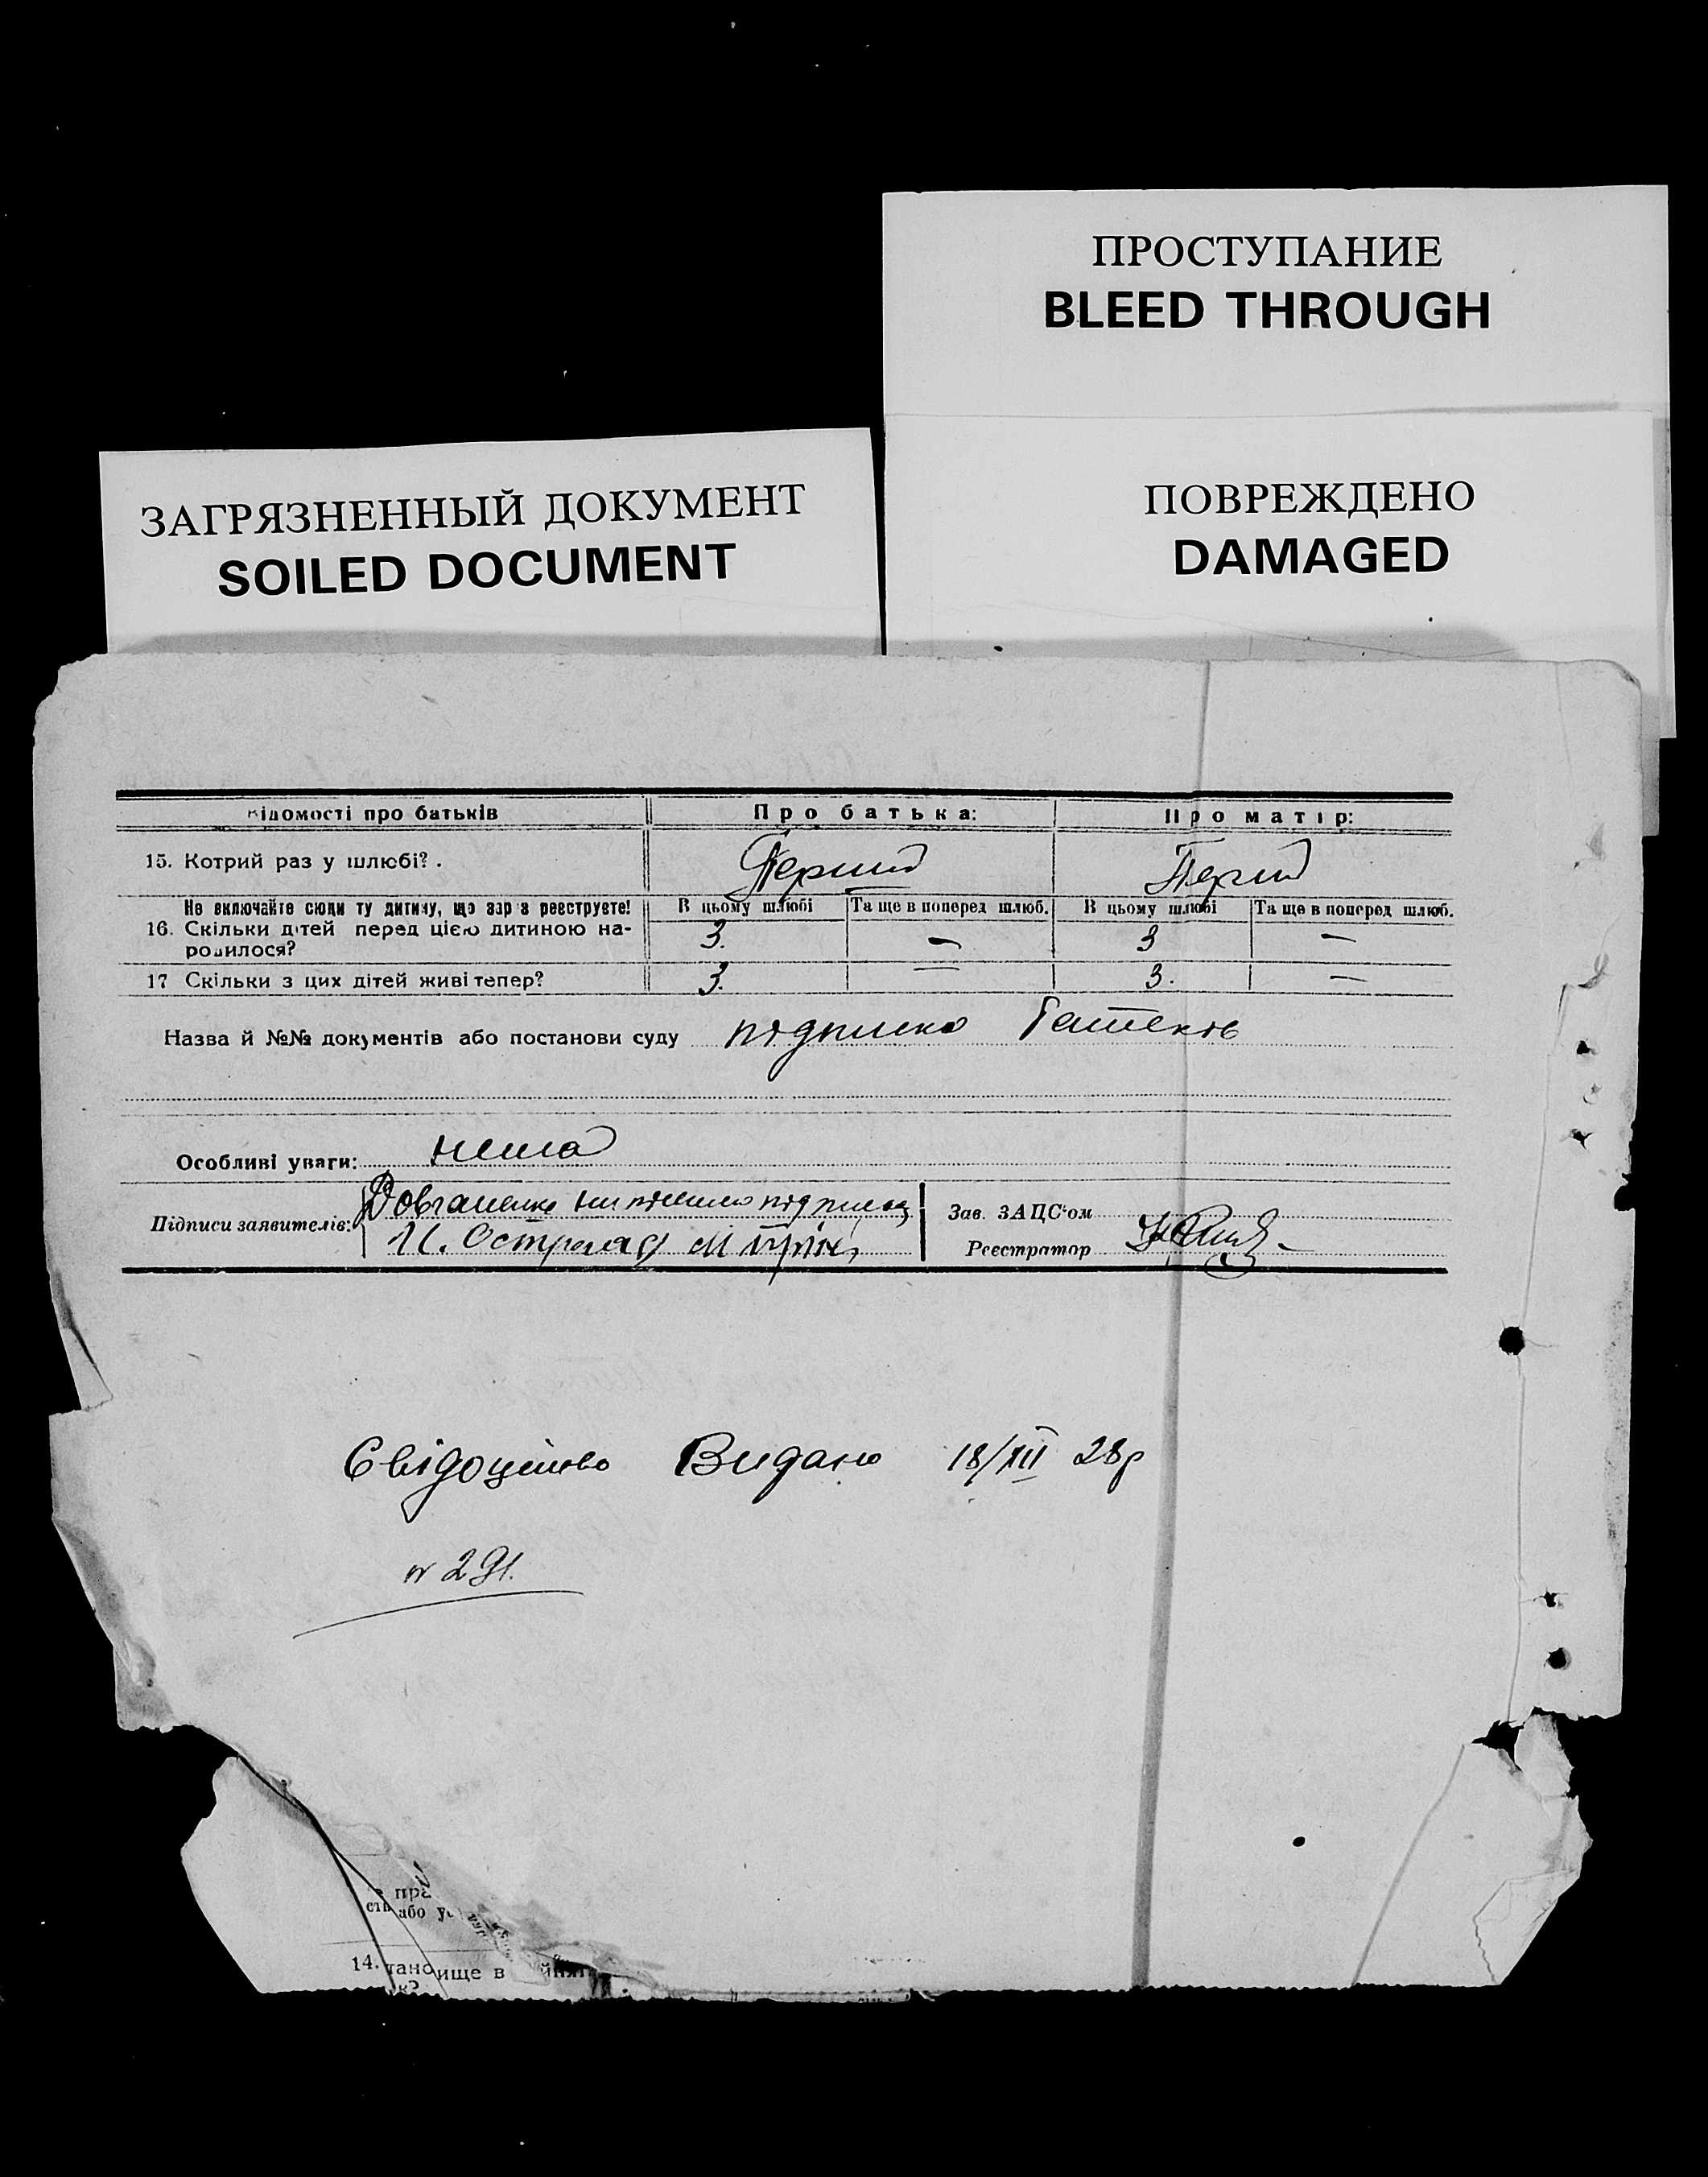 ПРОСТУПАНИЕ
BLEED THROUGH
ЗАГРЯЗНЕННЫЙ ДОКУМЕНТ
SOILED DOCUMENT
ПОВРЕЖДЕНО
DAMAGED
Відомості про батьків Про батька: Про матір:
15. Котрий раз у шлюбі? . Перший Перший
Не включайте сюди ту дитину, що зараз реєструєте! В цьому шлюбі Та ще в поперед шлюб. В цьому шлюбі Та ще в поперед шлюб.
16. Скільки дітей перед цією дитиною на-
родилося? 3. — 3 —
17 Скільки з цих дітей живі тепер? 3. — 3. —
Назва й №№ документів або постанови суду підписка
Особливі уваги: нема
Підписи заявителів:
Зав. ЗАЦС'ом
Реєстратор
Свідоцтво Видано 18/XII 28р
№ 291.
пра
сть або у
14. тановище в